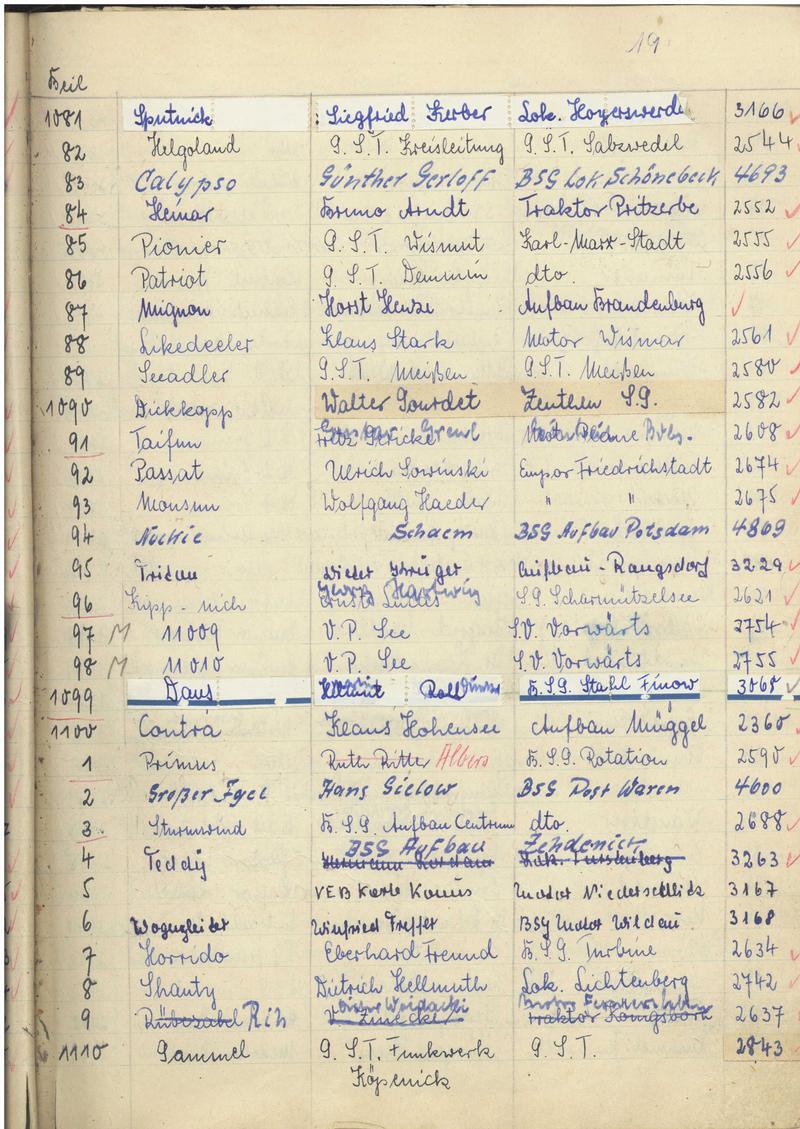 19
Beil
1081 Sputnick Siegfried Kerber Lok. Hoyerswerda 3166
82 Helgoland G.S.T. Kreisleitung G.S.T. Salzwedel 2544
83 Calypso Günther Gerloff BSG Lok Schönebeck 4693
84 Heinar Bruno Arndt Traktor Pritzerbe 2552
85 Pionier G.S.T. Wismut Karl-Marx-Stadt 2555
86 Patriot G.S.T. Demmin dto. 2556
87 Mignon Horst Henze Aufbau Brandenburg
88 Likedeeler Klaus Stark Motor Wismar 2561
89 Seeadler G.S.T. Meißen G.S.T. Meißen 2580
1090 Dickkopp Walter Gourdet Zeuthen S.G. 2582
91 Taifun 2608
92 Passat Ulrich Sowinski Empor Friedrichstadt 2674
93 Monsun Wolfgang Haeder " " 2675
94 Nuckie Schaem BSG Aufbau Potsdam 4869
95 Tristan Dieter Krüger Aufbau - Rangsdorf 3229
96 Kipp-mich Georg Hartwig S.G. Scharmützelsee 2621
97 M 11009 V.P. See S.V. Vorwärts 2754
98 M 11010 V.P. See S.V. Vorwärts 2755
1099 Daus Helmut B.S.G. Stahl Finow 3065
1100 Contra Klaus Hohensee Aufbau Müggel 2360
1 Primus Ruth Ritter Albers B.S.G. Rotation 2590
2 Großer Igel Hans Gielow BSG Post Waren 4600
3 Sturmwind B.S.G. Aufbau Centrum dto. 2688
BSG Aufbau Zehdenick
4 Teddy 3263
5 VEB Karte Konus Motor Niedersedlitz 3167
6 Wogengleiter Winfried Treffer BSG Motor Wildau 3168
7 Horrido Eberhard Freund B.S.G. Turbine 2634
8 Shanty Dietrich Hellmuth Lok. Lichtenberg 2742
9 Rübezahl 2637
1110 Gammel G.S.T. Funkwerk G.S.T. 2843
Köpenick